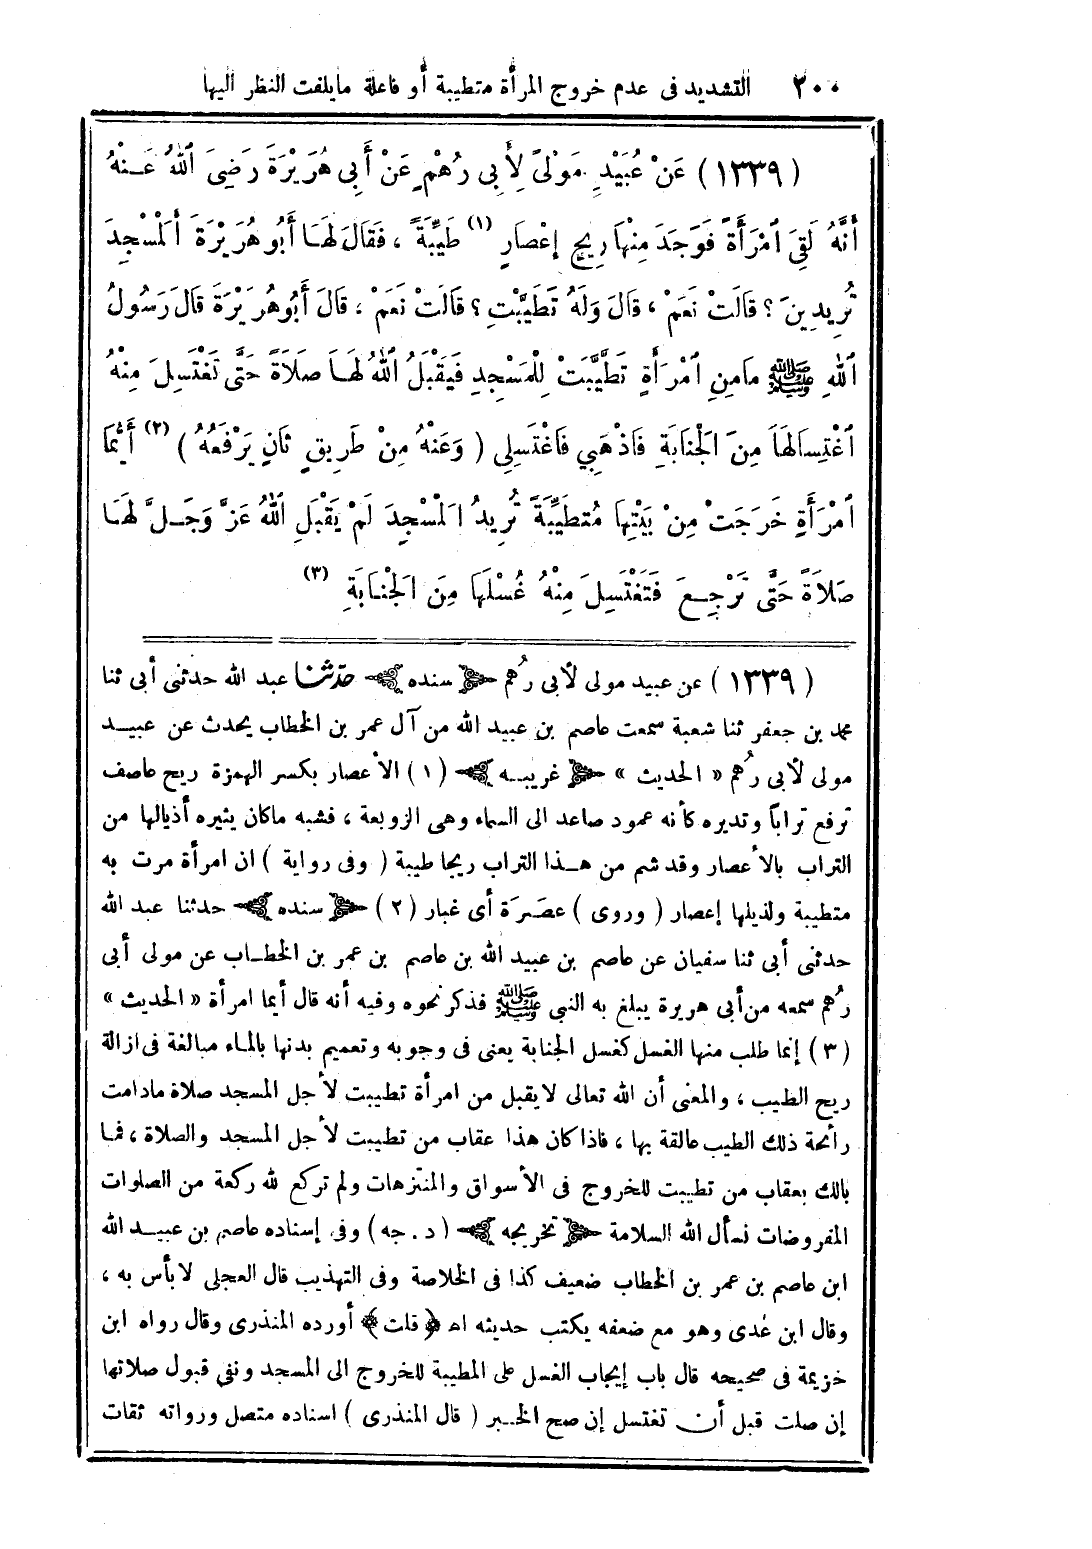 ٢٠٠ التشديد فى عدم خروج المرأة متطيبة أو فاعلة مايلفت النظر اليها
(١٣٣٩) عَنْ عُبَيْدٍ مَوْلىً لِأَبِى رُهْمٍ عَنْ أَبِى هُرَيْرَةَ رَضِيَ اللهُ عَنْهُ
أَنَّهُ لَقِىَ اُمْرَأَةً فَوَجَدَ مِنْهَا رِيحَ إِعْصَارٍ (١) طَيِّبَةً ، فَقَالَ لَهَا أَبُو هُرَيْرَةَ أَلْمَسْجِدَ
تُرِيدِينَ ؟ قَالَتْ نَعَمْ ، قَالَ وَلَهُ تَطَيَّبْتِ ؟ قَالَتْ نَعَمْ ، قَالَ أَبُو هُرَيْرَةَ قَالَ رَسُولُ
اللهِ ﷺ مَا مِنِ اُمْرَأَةٍ تَطَيَّبَتْ لِلْمَسْجِدِ فَيَقْبَلُ اللهُ لَهَا صَلَاةً حَتَّى تَغْتَسِلَ مِنْهُ
اُغْتِسَالَهَا مِنَ الْجَنَابَةِ فَاذْهَبِي فَاغْتَسِلِى ( وَعَنْهُ مِنْ طَرِيقٍ ثَانٍ يَرْفَعُهُ ) (٢) أَيُّمَا
اُمْرَأَةٍ خَرَجَتْ مِنْ بَيْتِهَا مُتَطَيِّبَةً تُرِيدُ الْمَسْجِدَ لَمْ يَقْبَلِ اللهُ عَزَّ وَجَلَّ لَهَا
صَلَاةً حَتَّى تَرْجِعَ فَتَغْتَسِلَ مِنْهُ غُسْلَهَا مِنَ الْجَنَابَةِ (٣)
(١٣٣٩) عن عبيد مولى لأبى رُهم ﴿سنده﴾ حدّثنا عبد الله حدثنى أبى ثنا
محمد بن جعفر ثنا شعبة سمعت عاصم بن عبيد الله من آل عمر بن الخطاب يحدث عن عبيد
مولى لأبى رُهم « الحديث » ﴿غريبه﴾ (١) الأعصار بكسر الهمزة ريح عاصف
ترفع تراباً وتديره كأنه عمود صاعد الى السماء وهى الزوبعة ، فشبه ماكان يثيره أذيالها من
التراب بالأعصار وقد شم من هذا التراب ريحا طيبة ( وفى رواية ) ان امرأة مرت به
متطيبة ولذيلها إعصار ( وروى ) عصَرَة أى غبار (٢) ﴿سنده﴾ حدثنا عبد الله
حدثنى أبى ثنا سفيان عن عاصم بن عبيد الله بن عاصم بن عمر بن الخطاب عن مولى أبى
رُهم سمعه من أبى هريرة يبلغ به النبى ﷺ فذكر نحوه وفيه أنه قال أيما امرأة « الحديث »
(٣) إنما طلب منها الغسل كغسل الجنابة يعنى فى وجوبه وتعميم بدنها بالماء مبالغة فى ازالة
ريح الطيب ، والمعنى أن الله تعالى لايقبل من امرأة تطيبت لأجل المسجد صلاة مادامت
رائحة ذلك الطيب عالقة بها ، فاذا كان هذا عقاب من تطيبت لأجل المسجد والصلاة ، فما
بالك بعقاب من تطيبت للخروج فى الأسواق والمنتزهات ولم تركع لله ركعة من الصلوات
المفروضات نسأل الله السلامة ﴿تخريجه﴾ ( د . جه ) وفى إسناده عاصم بن عبيد الله
ابن عاصم بن عمر بن الخطاب ضعيف كذا فى الخلاصة وفى التهذيب قال العجلى لابأس به ،
وقال ابن عُدى وهو مع ضعفه يكتب حديثه اه ﴿قلت﴾ أورده المنذرى وقال رواه ابن
خزيمة فى صحيحه قال باب إيجاب الغسل على المطيبة للخروج الى المسجد ونفى قبول صلاتها
إن صلت قبل أن تغتسل إن صح الخبر ( قال المنذرى ) اسناده متصل ورواته ثقات